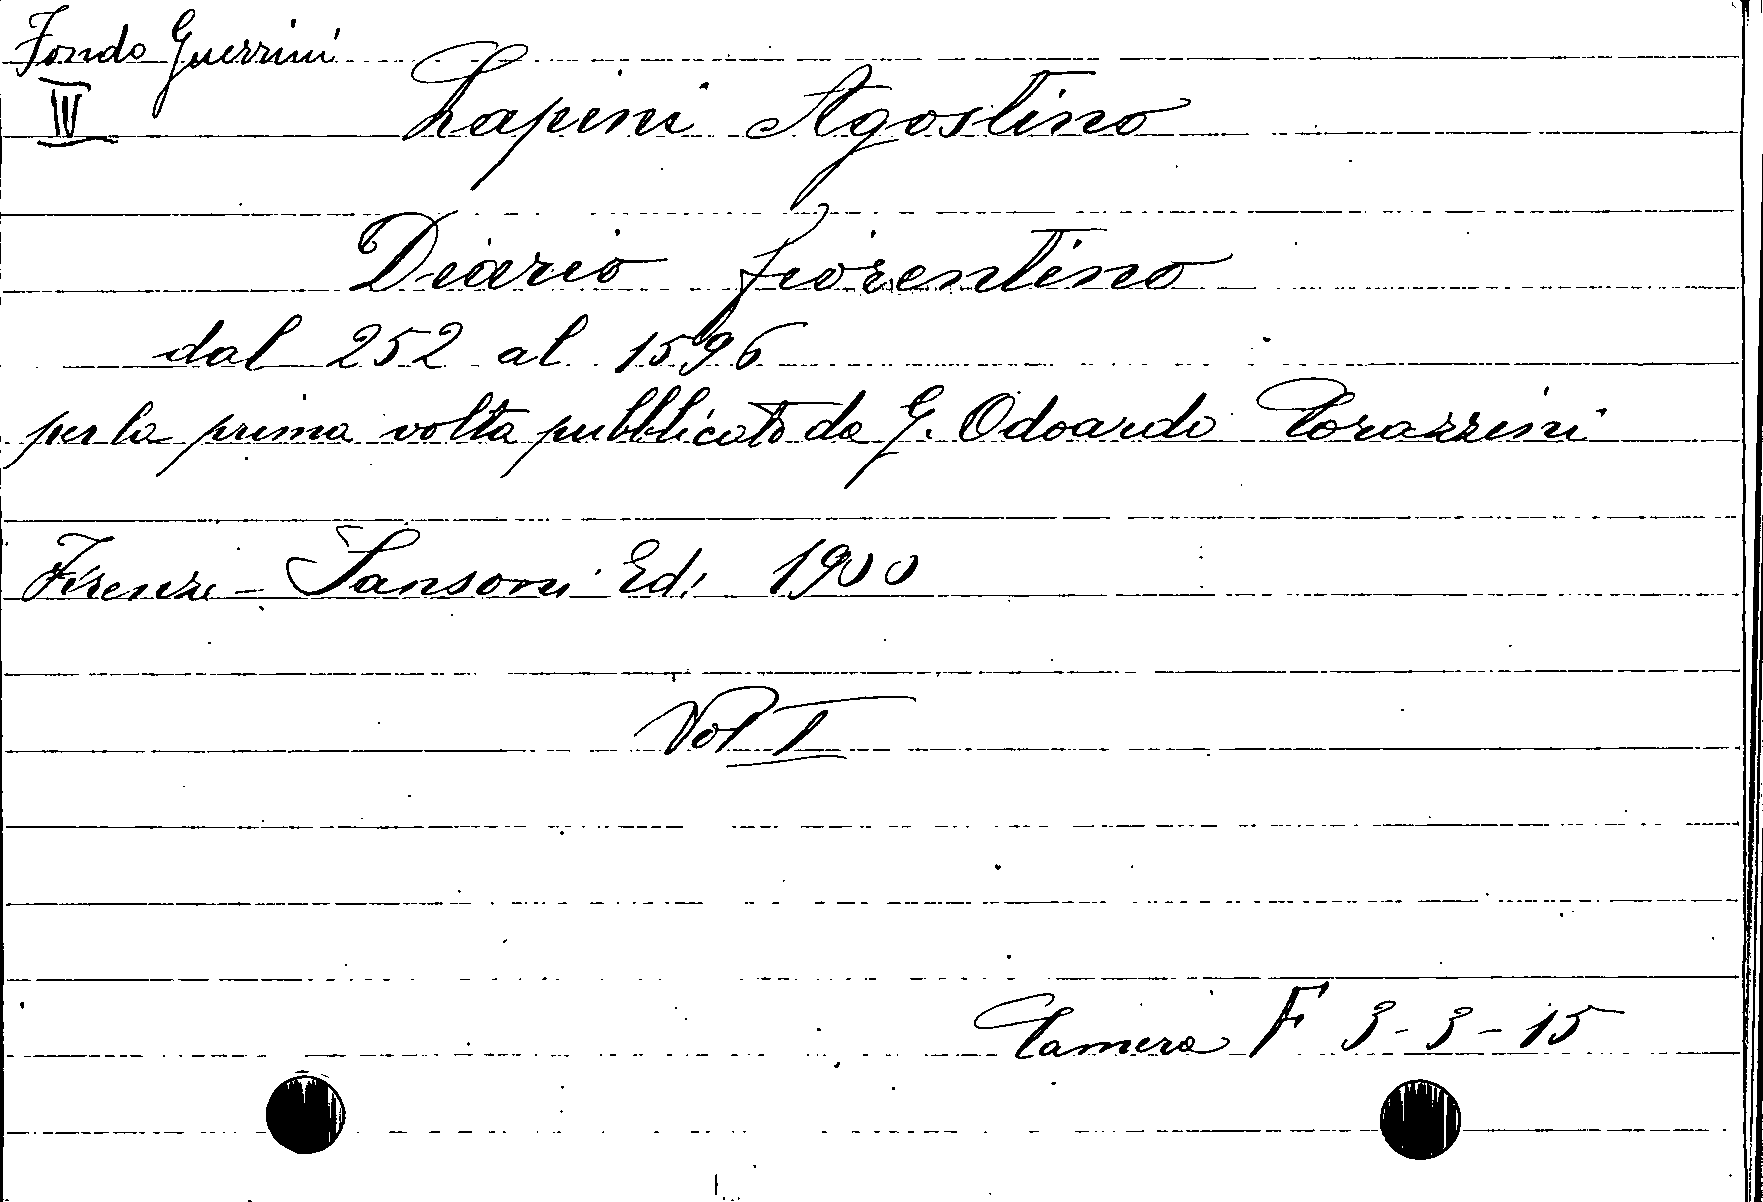 Fondo Guerrini
IV
Lapini Agostino
Diario fiorentino
dal 252 al 1596
per la prima volta pubblicato da G. Odoardo Corazzini
Firenze - Sansoni Ed. 1900
Vol I
Camera F 3-3-15